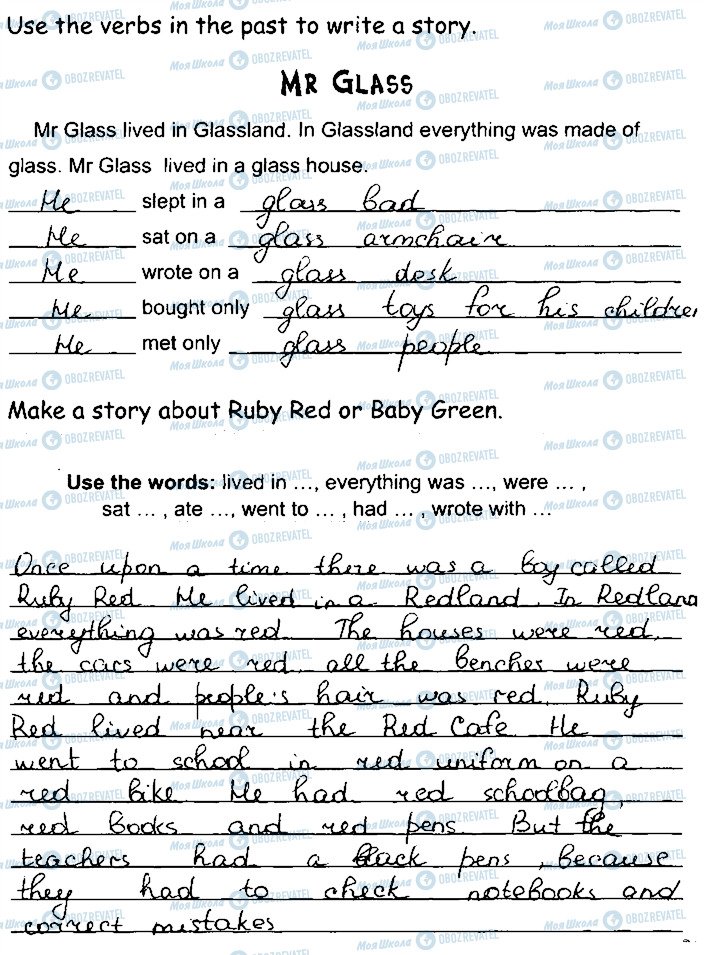 Use the verbs in the past to write a story.
MR GLASS
Mr Glass lived in Glassland. In Glassland everything was made of
glass. Mr Glass lived in a glass house.
He slept in a glass bad
He sat on a glass armchair
He wrote on a glass desk
He bought only glass toys for his children
He met only glass people
Make a story about Ruby Red or Baby Green.
Use the words: lived in ..., everything was ..., were ... ,
sat ... , ate ..., went to ... , had ... , wrote with ...
Once upon a time there was a boy called
Ruby Red He lived in a Redland. In Redland
everything was red. The houses were red,
the cars were red all the benches were
red and people's hair was red. Ruby
Red lived near the Red Cafe He
went to school in red uniform on a
red bike He had red schoolbag,
red books and red pens. But the
teachers had a black pens, because
they had to check notebooks and
correct mistakes